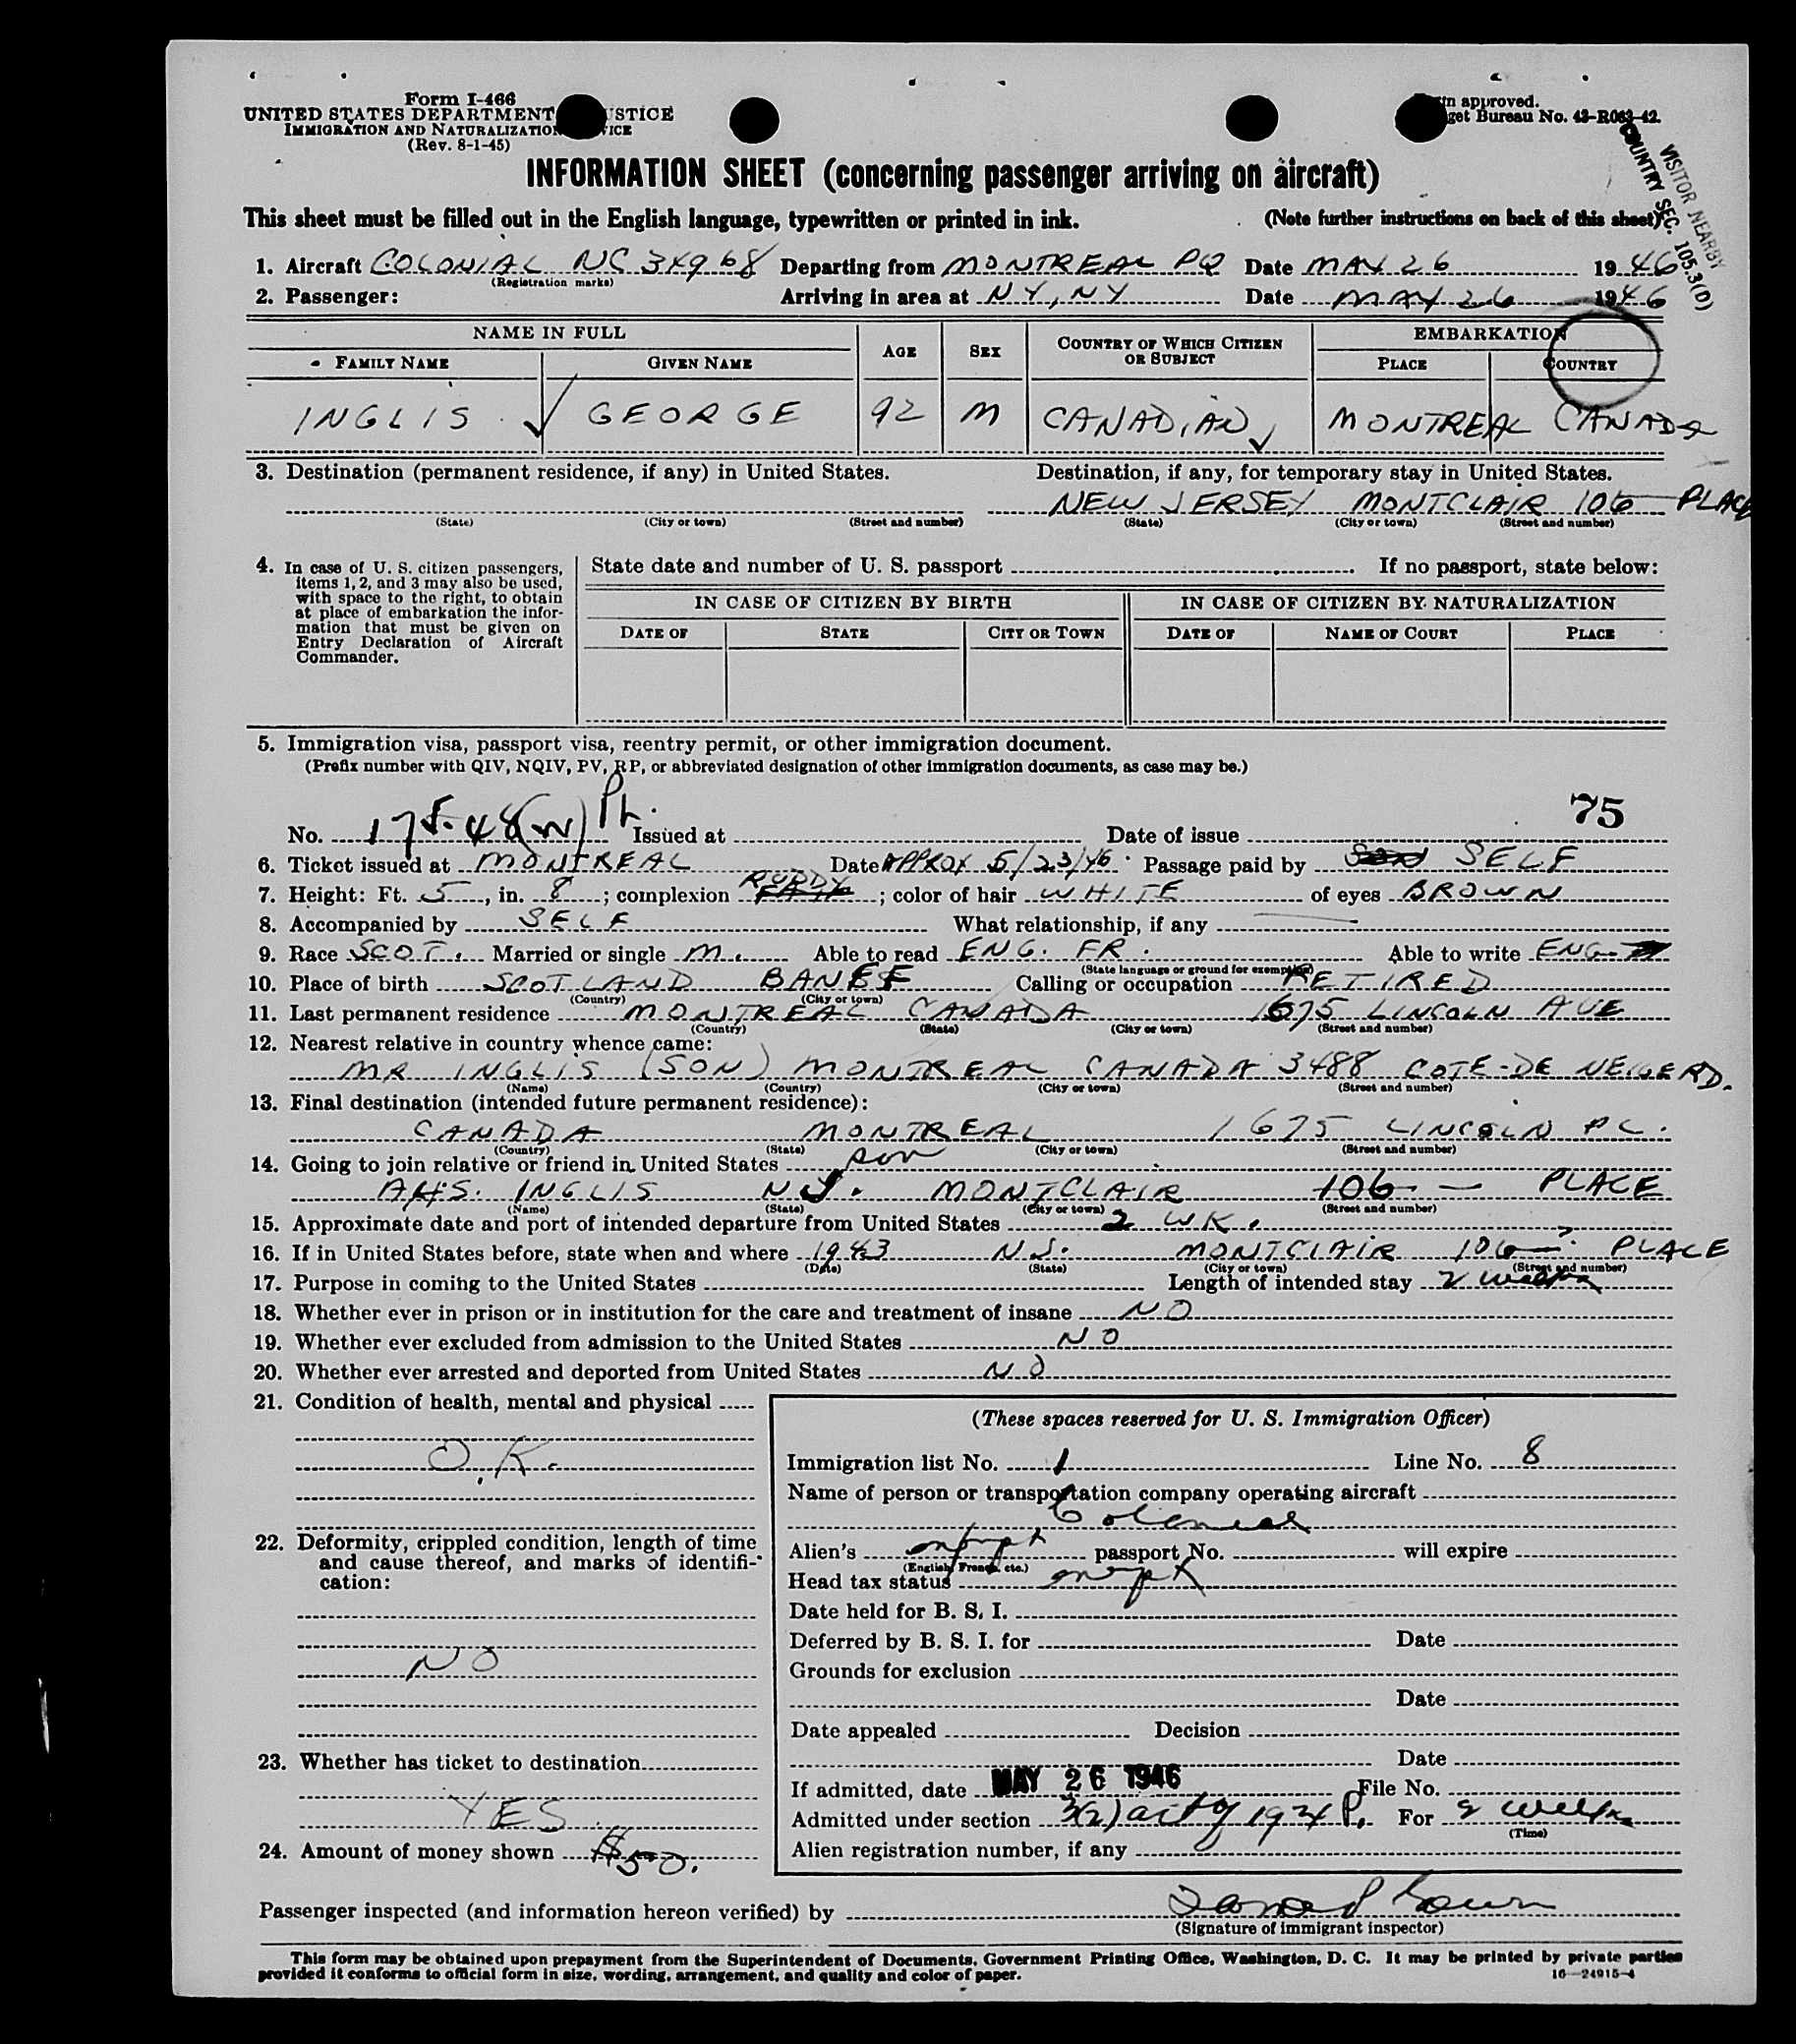 Form I-466
UNITED STATES DEPARTMENT
STICE
IMMIGRATION AND NATURALIZATION
ICE
(Rev. 8-1-45)
approved.
get Bureau No. 43-R063-42.
VISITOR NEARBY
COUNTRY SEC. 105.3(D)
INFORMATION SHEET (concerning passenger arriving on aircraft)
This sheet must be filled out in the English language, typewritten or printed in ink. (Note further instructions on back of this sheet)
1. Aircraft COLONIAL NC 34968 Departing from MONTREAL PQ Date MAY 26 1946
(Registration marks)
2. Passenger: Arriving in area at NY, NY Date MAY 26 1946
NAME IN FULL AGE SEX COUNTRY OF WHICH CITIZEN OR SUBJECT EMBARKATION
FAMILY NAME GIVEN NAME PLACE COUNTRY
INGLIS GEORGE 92 M CANADIAN MONTREAL CANADA
3. Destination (permanent residence, if any) in United States. Destination, if any, for temporary stay in United States.
NEW JERSEY MONTCLAIR 106 — PLACE
(State) (City or town) (Street and number) (State) (City or town) (Street and number)
4. In case of U. S. citizen passengers, items 1, 2, and 3 may also be used, with space to the right, to obtain at place of embarkation the information that must be given on Entry Declaration of Aircraft Commander.
State date and number of U. S. passport If no passport, state below:
IN CASE OF CITIZEN BY BIRTH IN CASE OF CITIZEN BY NATURALIZATION
DATE OF STATE CITY OR TOWN DATE OF NAME OF COURT PLACE
5. Immigration visa, passport visa, reentry permit, or other immigration document.
(Prefix number with QIV, NQIV, PV, RP, or abbreviated designation of other immigration documents, as case may be.)
75
No. 175.48(W) Issued at Date of issue
6. Ticket issued at MONTREAL Date APPROX 5/23/46 Passage paid by SELF
7. Height: Ft. 5, in. 8; complexion RUDDY; color of hair WHITE of eyes BROWN
8. Accompanied by SELF What relationship, if any
9. Race SCOT. Married or single M. Able to read ENG. FR. Able to write ENG
(State language or ground for exemption)
10. Place of birth SCOTLAND BANFF Calling or occupation RETIRED
(Country) (City or town)
11. Last permanent residence MONTREAL CANADA 1675 LINCOLN AVE
(Country) (State) (City or town) (Street and number)
12. Nearest relative in country whence came:
MR INGLIS (SON) MONTREAL CANADA 3488 COTE-DE NEIGE RD.
(Name) (Country) (City or town) (Street and number)
13. Final destination (intended future permanent residence):
CANADA MONTREAL 1675 LINCOLN PL.
(Country) (State) (City or town) (Street and number)
14. Going to join relative or friend in United States son
A.H.S. INGLIS N.J. MONTCLAIR 106 — PLACE
(Name) (State) (City or town) (Street and number)
15. Approximate date and port of intended departure from United States 2 WK.
16. If in United States before, state when and where 1943 N.J. MONTCLAIR 106 — ? PLACE
(Date) (State) (City or town) (Street and number)
17. Purpose in coming to the United States Length of intended stay 2 weeks
18. Whether ever in prison or in institution for the care and treatment of insane NO
19. Whether ever excluded from admission to the United States NO
20. Whether ever arrested and deported from United States NO
21. Condition of health, mental and physical
O.K.
22. Deformity, crippled condition, length of time and cause thereof, and marks of identification:
NO
23. Whether has ticket to destination
YES
24. Amount of money shown $50.
(These spaces reserved for U. S. Immigration Officer)
Immigration list No. 1 Line No. 8
Name of person or transportation company operating aircraft
Colonial
Alien's exempt passport No. will expire
(English, French, etc.)
Head tax status exempt
Date held for B. S. I.
Deferred by B. S. I. for Date
Grounds for exclusion
Date
Date appealed Decision
Date
If admitted, date MAY 26 1946 File No.
Admitted under section 3(2) act of 1924 P. For 2 weeks
(Time)
Alien registration number, if any
Passenger inspected (and information hereon verified) by
(Signature of immigrant inspector)
This form may be obtained upon prepayment from the Superintendent of Documents, Government Printing Office, Washington, D. C. It may be printed by private parties
provided it conforms to official form in size, wording, arrangement, and quality and color of paper.
16—24915-4